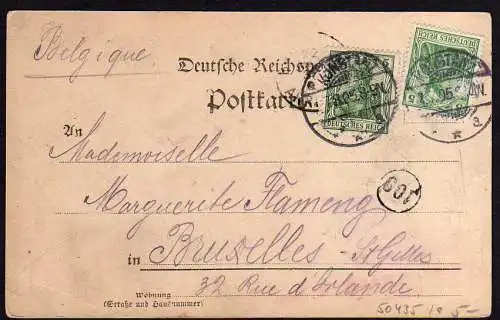 Belgique
Deutsche Reichspost
Postkarte
DEUTSCHES REICH
5
DEUTSCHES REICH
5
An
Mademoiselle
Marguerite Flameng
100
in Bruxelles - St Gilles
32 Rue d'Irlande
Wohnung
(Straße und Hausnummer)
50435
5-